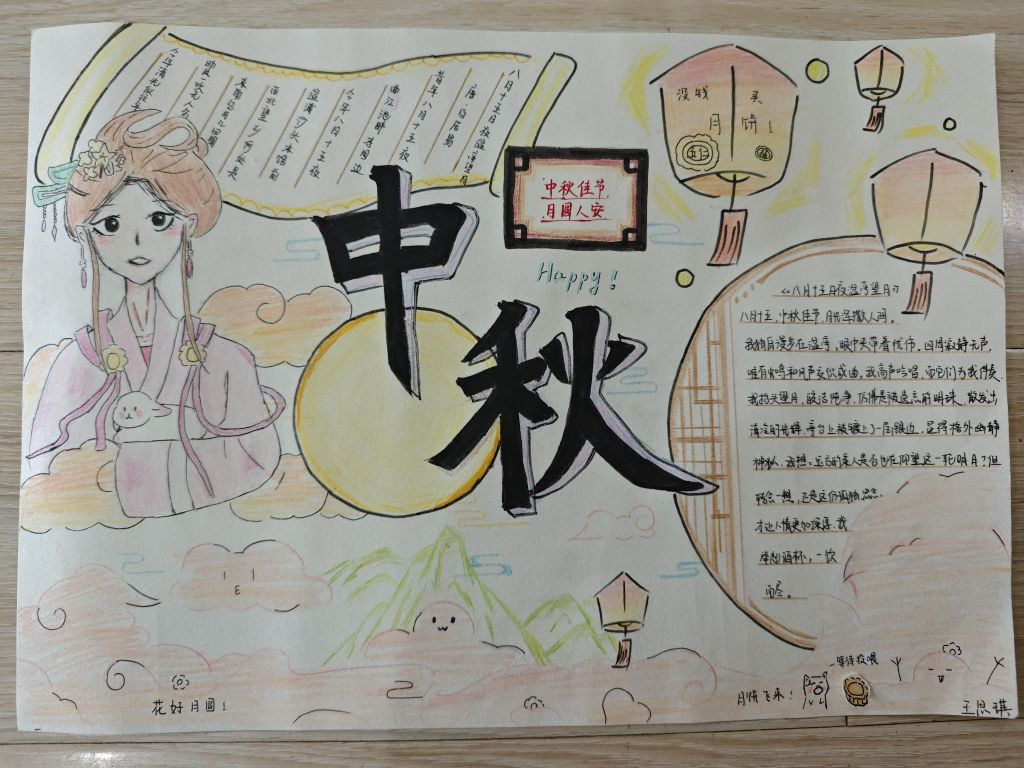 八月十五日夜湓亭望月
唐·白居易
昔年八月十五夜
曲江池畔杏园边
今年八月十五夜
湓浦沙头水馆前
西北望乡何处是
东南见月几回圆
昨风一吹无人会
今年清光似往年
没钱买
月饼！
中秋佳节
月圆人安
Happy！
中秋
《八月十五日夜湓亭望月》
八月十五，中秋佳节，月光洋撒人间。
我独自漫步在湓亭，眼中夹带着忧伤。四周寂静无声，
唯有虫鸣和风声交织成曲，我高声吟唱，而它们为我伴奏
我抬头望月，皎洁纯净，仿佛是被遗忘的明珠，散发出
清冷的光辉。亭台上被镀上了一层银边，显得格外幽静
神秘。我想：在家的亲人是否也在仰望这一轮明月？但
转念一想，还是这份孤独
才让人情更加深厚。我
举起酒杯，一饮
而尽。
花好月圆！
月饼飞来！
等待投喂
王思琪